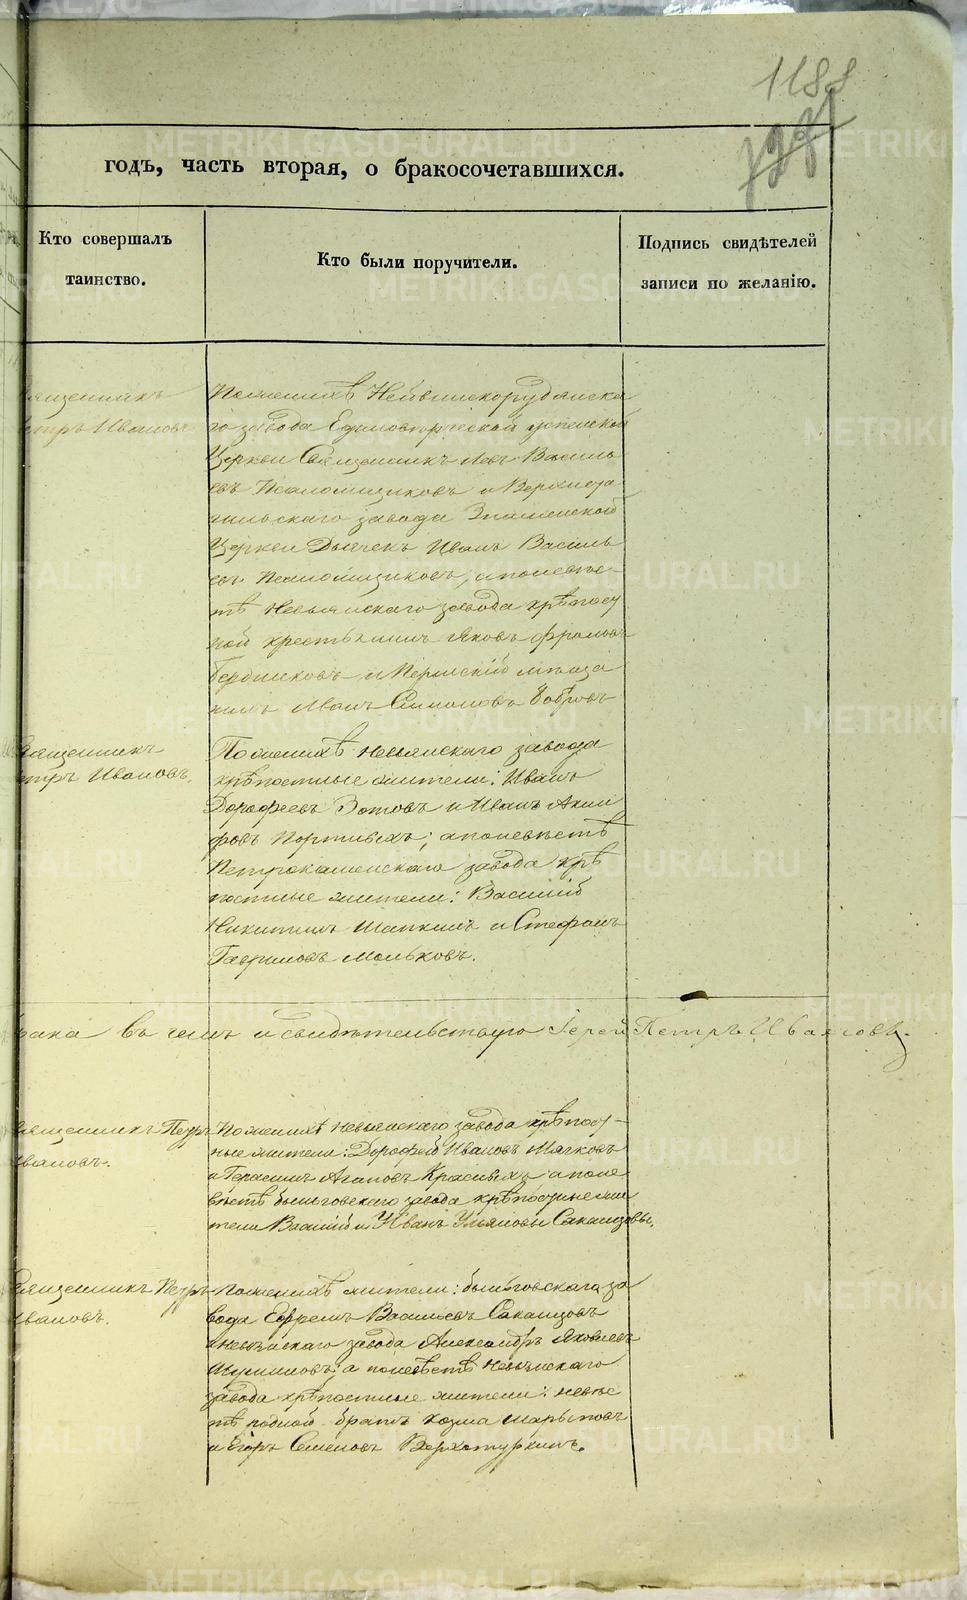 1188
годъ, часть вторая, о бракосочетавшихся.
Кто совершалъ
таинство.
Кто были поручители.
Подпись свидѣтелей
записи по желанію.
Священникъ
Петръ Ивановъ
По женихѣ Нейвинскорудянска
го завода Единовѣрческой успенской
Церкви Священникъ Левъ Василь
евъ Псаломщиковъ и Верхнета
гильскаго завода Знаменской
Церкви Дьячекъ Иванъ Василь
евъ Псаломщиковъ, а по невѣс-
тѣ Невьянскаго завода крѣпост
ной крестьянинъ Яковъ
Бердниковъ и Пермскій мѣща
нинъ Иванъ Симоновъ Бобровъ
Священникъ
Петръ Ивановъ.
По женихѣ Невьянскаго завода
крѣпостные жители: Иванъ
Дорофеевъ Зотовъ и Иванъ Аким
фовъ Портныхъ; а по невѣстѣ
Петрокаменскаго завода крѣ
постные жители: Василий
Никитинъ Шапкинъ и Стефанъ
Гавриловъ Мальковъ.
брака въ чемъ и свидѣтельствую Іерей Петръ Ивановъ.
Священникъ Петръ
Ивановъ.
По женихѣ Невьянскаго завода крѣпост-
ные жители: Дорофей Ивановъ Мягковъ
и Герасимъ Агаповъ Красныхъ а по не-
вѣстѣ Быньговскаго завода крѣпостные жи
тели Василій и Иванъ Ульяновы Саканцовы.
Священникъ Петръ
Ивановъ.
По женихѣ жители: Быньговскаго за
вода Ефремъ Васильевъ Саканцовъ
и Невьянскаго завода Александръ Яковлевъ
а по невѣстѣ Невьянскаго
завода крѣпостные жители: невѣс
тѣ родной братъ Козма
и Егоръ Семеновъ Верхотуркинъ.